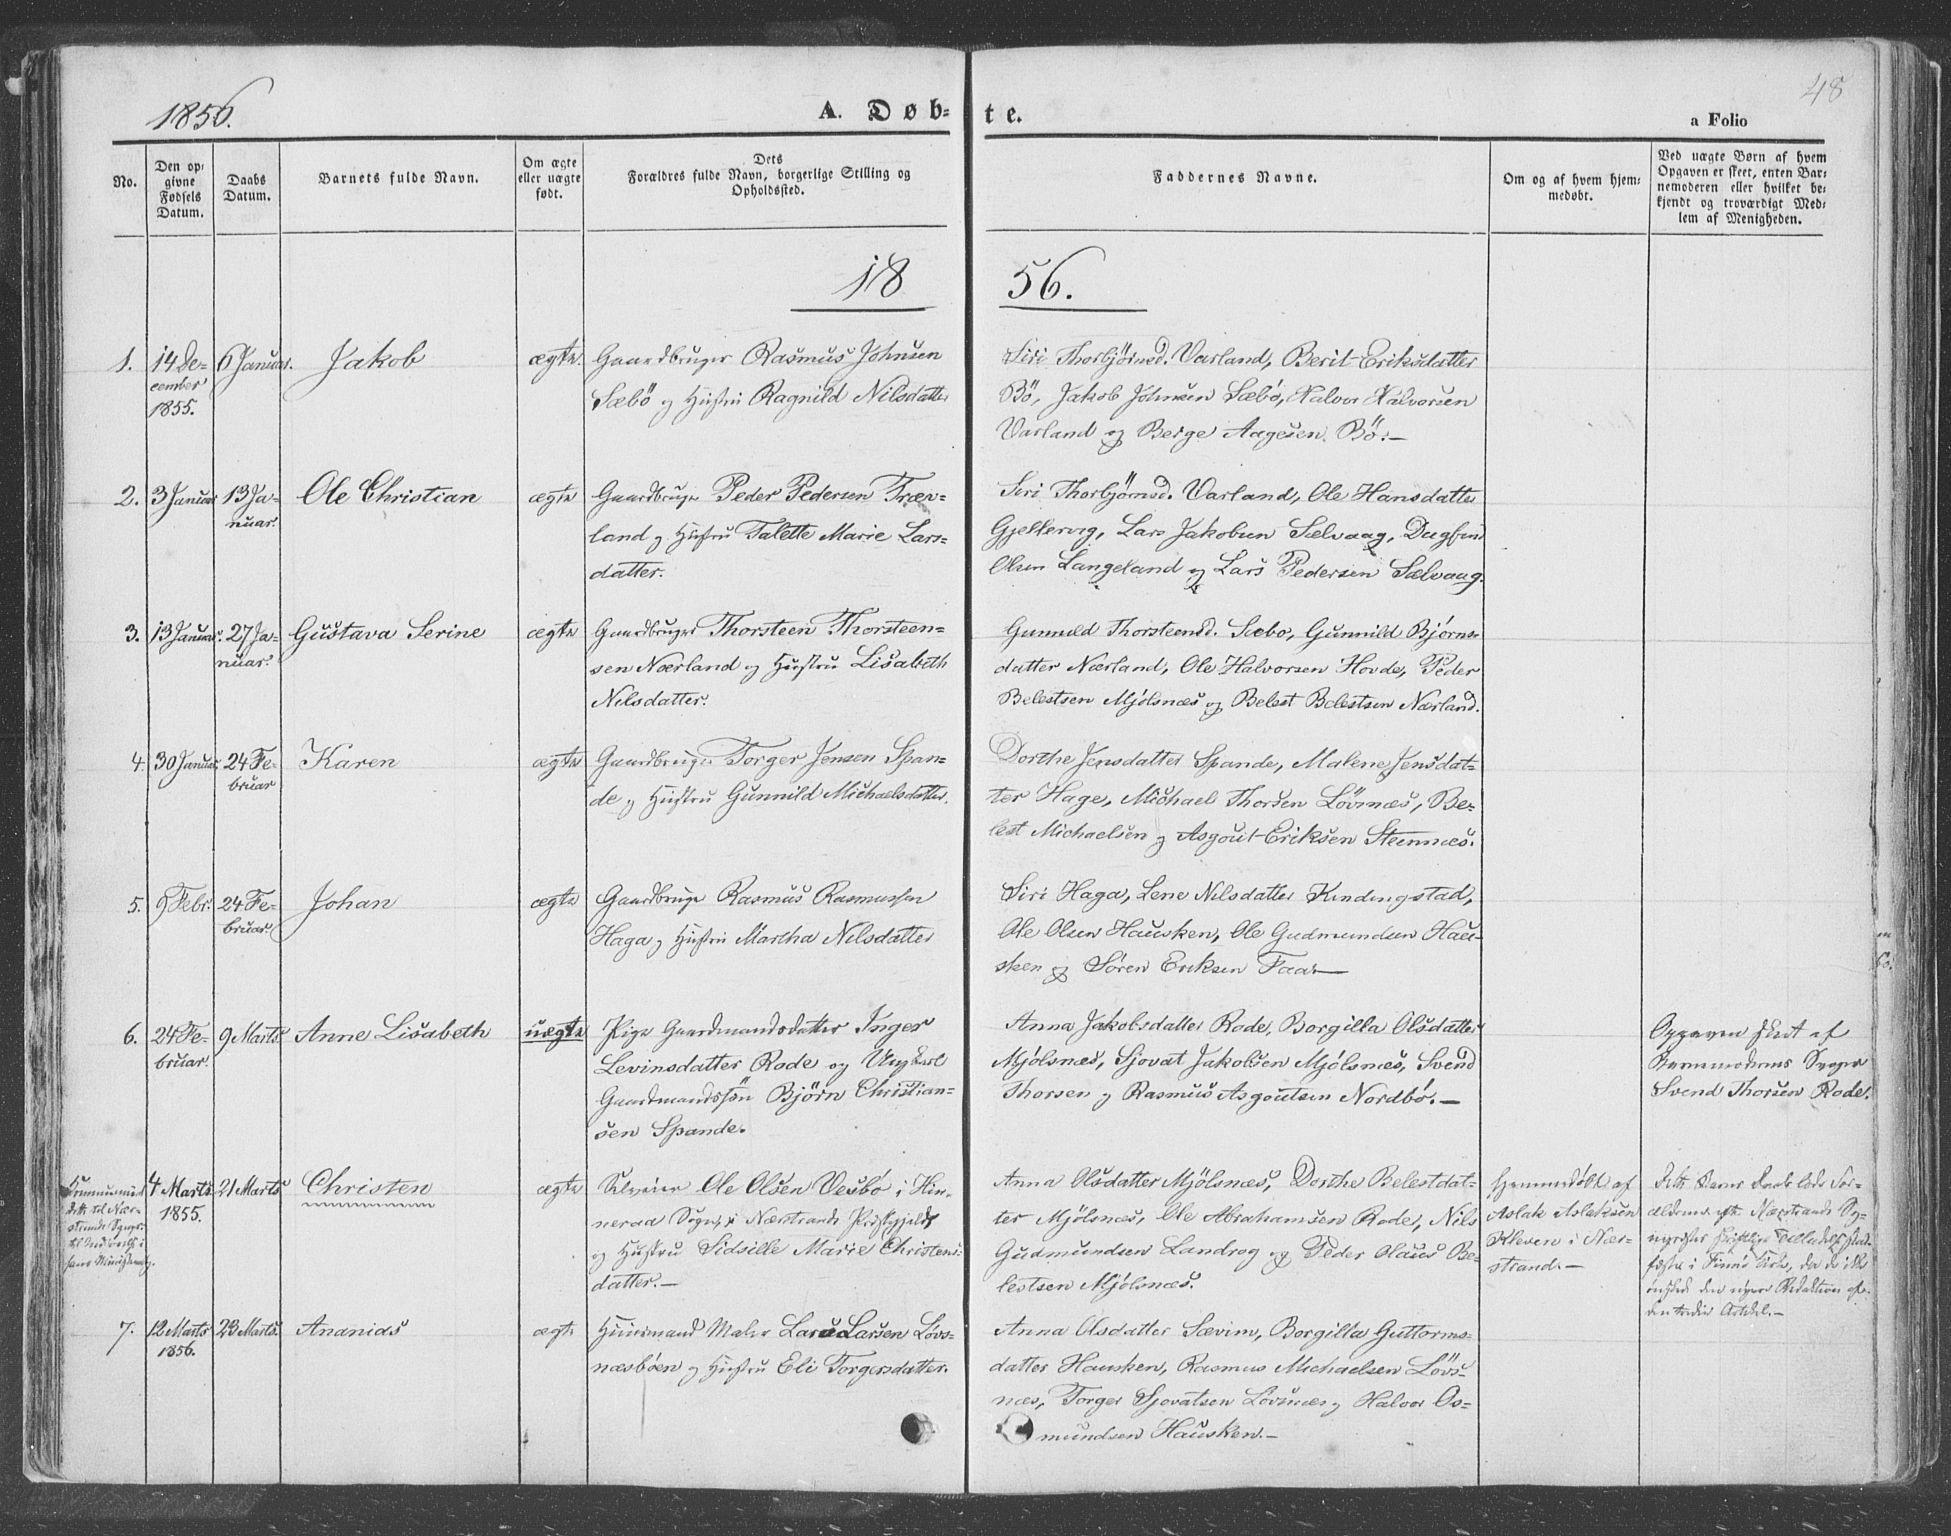 1856.
A. Døb-
te.
48
a Folio
No.
Den op-
givne
Fødsels
Datum.
Daabs
Datum.
Barnets fulde Navn.
Om ægte
eller uægte
født.
Dets
Forældres fulde Navn, borgerlige Stilling og
Opholdssted.
Faddernes Navne.
Om og af hvem hjem-
medøbt.
Ved uægte Børn af hvem
Opgaven er skeet, enten Bar-
nemoderen eller hvilket be-
kjendt og troværdigt Med-
lem af Menigheden.
18
56.
1.
14 De-
cember
1855.
6 Januar.
Jakob
ægte.
Gaardbruger Rasmus Johnsen
Sæbö og Hustru Ragnild Nilsdatter
Siri Thorbjörnsd. Varland, Berit Eriksdatter
Bö, Jakob Johnsen Sæbö, Halvor Halvorsen
Varland og Berge Aagesen Bö.—
2.
3 Januar
13 Ja-
nuar.
Ole Christian
ægte
Gaardbruger Peder Pedersen Træv-
land og Hustru Talette Marie Lars-
datter.
Siri Thorbjörnsd. Varland, Ole Hansdatter
Gjellervig, Lars Jakobsen Sælvaag, Dagfind
Olsen Langeland og Lars Pedersen Sælvaag.
3.
13 Januar.
27 Ja-
nuar.
Gustava Serine
ægte
Gaardbruger Thorsteen Thorsteen-
sen Nærland og Hustru Lisabeth
Nilsdatter.
Gunnild Thorsteensd. Sæbø, Gunnild Bjørns-
datter Nærland, Ole Halvorsen Hovde, Peder
Belestsen Mjölsnæs og Belest Belestsen Nærland.
4.
30 Januar
24 Fe-
bruar
Karen
ægte
Gaardbruger Torger Jensen Span-
de og Hustru Gunnild Michaelsdatter.
Dorthe Jensdatter Spande, Malene Jensdat-
ter Hage, Michael Thorsen Lövnæs, Be-
lest Michaelsen og Asgout Eriksen Steennæs.
5.
9 Febr.
24 Fe-
bruar
Johan
ægte
Gaardbruger Rasmus Rasmussen
Haga og Hustru Martha Nilsdatter
Siri Haga, Lene Nilsdatter Kindingstad,
Ole Olsen Hausken, Ole Gudmundsen Hau-
sken og Sören Eriksen Faa.—
6.
24 Fe-
bruar.
9 Marts
Anne Lisabeth
uægte
Pige Gaardmandsdatter Inger
Levinsdatter Rode og Ungkarl
Gaardmandssön Björn Christian-
sen Spande.
Anna Jakobsdatter Rode, Borgilla Olsdatter
Mjölsnæs, Sjovat Jakobsen Mjölsnæs, Svend
Thorsen og Rasmus Asgoutsen Nordbö.—
Opgaven skeet af
Barnemoderens Svoger
Svend Thorsen Rode.
7 
4 Marts
1855.
21 Marts
Christen
ægte
Selveier Ole Olsen Vesbö i Hin-
neraa Sogn i Nærstrands Præstegjeld
og Hustru Sidsille Marie Christens-
datter.—
Anna Olsdatter Mjölsnæs, Dorthe Belestdat-
ter Mjölsnæs, Ole Abrahamsen Rode, Nils
Gudmundsen Landrog og Peder Olaus Be-
lestsen Mjölsnæs.
Hjemmedöbt af
Aslak Aslaksen
Kleven i Nær-
strand.—
7.
12 Marts
1856.
23 Marts.
Ananias
ægte
Huusmand Maler Lars Larsen Lövs-
næsböen og Hustru Eli Torgersdatter.
Anna Olsdatter Sævim, Borgilla Guttorms-
datter Hausken, Rasmus Michaelsen Lövs-
næs, Torger Sjovatsen Lövsnæs og Halvor Os-
mundsen Hausken.—